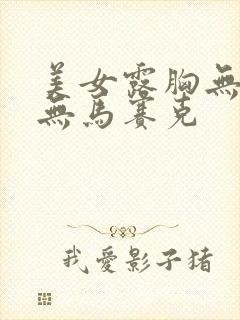 美女露胸無
無馬賽克
我愛影子猪